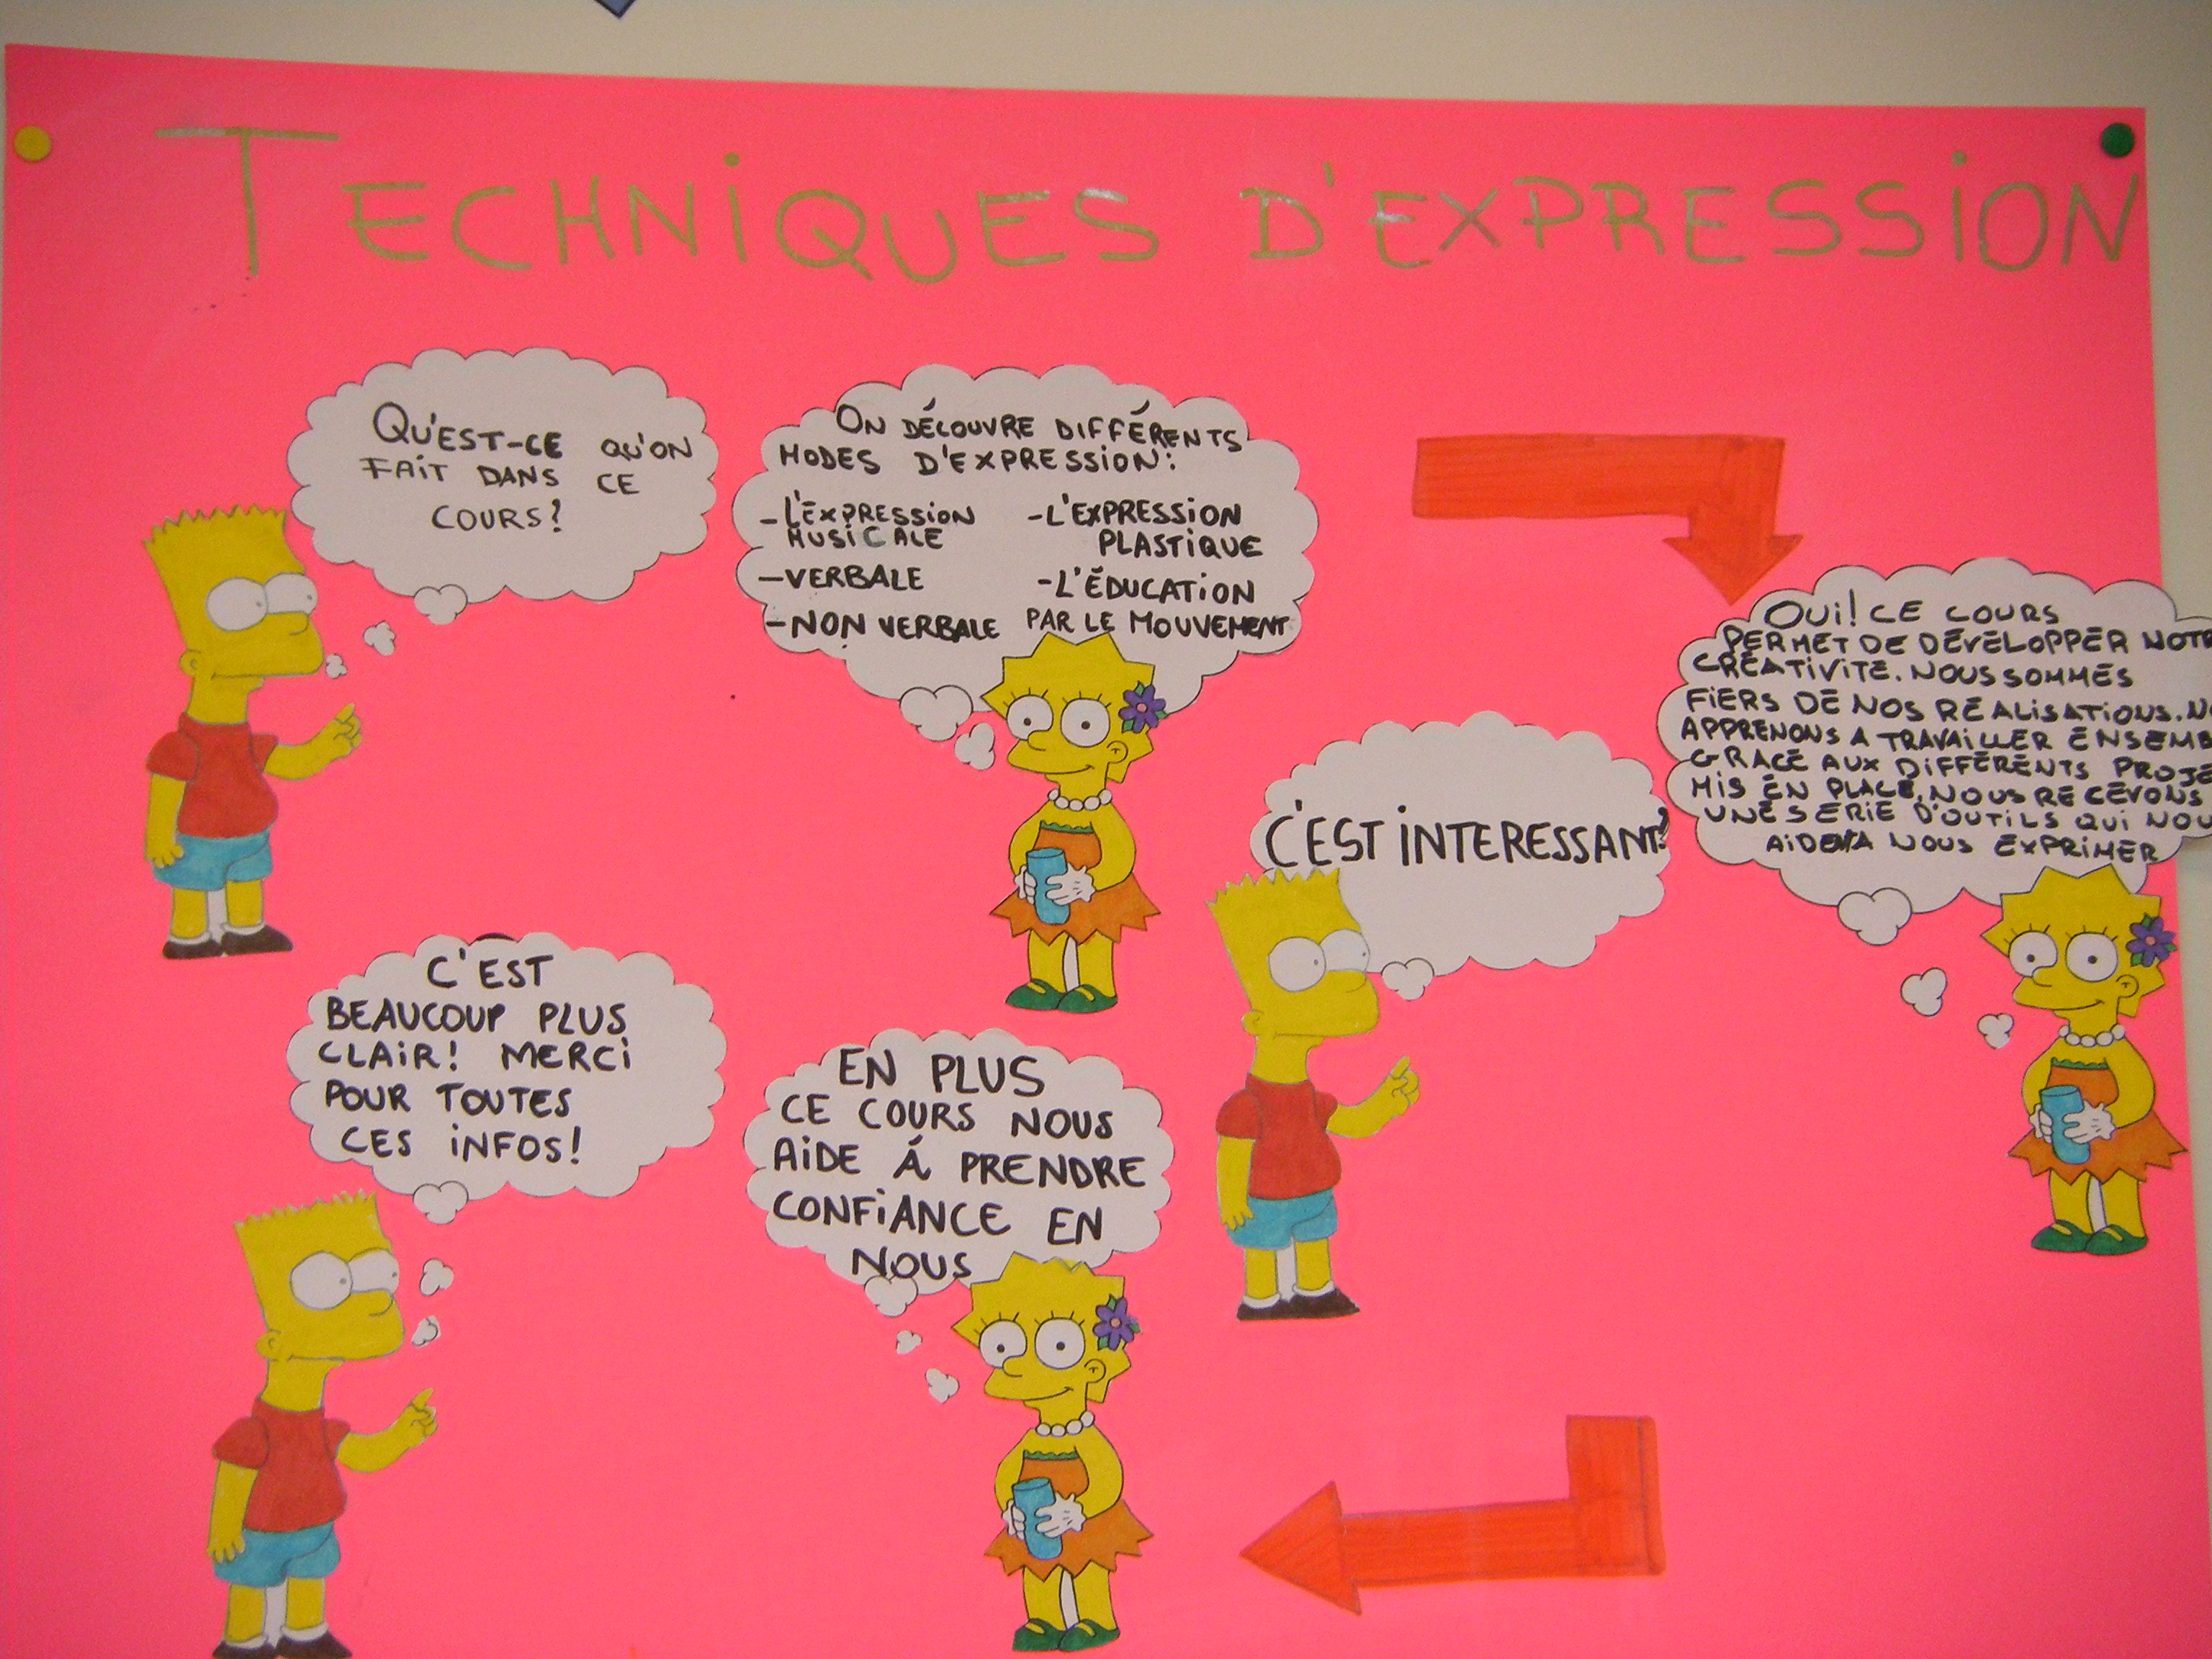 TECHNIQUES D'EXPRESSION
QU'EST-CE QU'ON
FAIT DANS CE
COURS?
ON DÉCOUVRE DIFFÉRENTS
MODES D'EXPRESSION:
-L'EXPRESSION
MUSICALE
-VERBALE
-NON VERBALE
-L'EXPRESSION
PLASTIQUE
-L'ÉDUCATION
PAR LE MOUVEMENT
C'EST INTERESSANT?
OUI! CE COURS
PERMET DE DÉVELOPPER
CRÉATIVITE. NOUS SOMMES
FIERS DE NOS REALISATIONS.
APPRENONS A TRAVAILLER
GRACE AUX DIFFÉRENTS
MIS EN PLACE, NOUS RECEVONS
UNE SERIE D'OUTILS QUI
NOUS EXPRIMER
EN PLUS
CE COURS NOUS
AIDE Á PRENDRE
CONFIANCE EN
NOUS
C'EST
BEAUCOUP PLUS
CLAIR! MERCI
POUR TOUTES
CES INFOS!